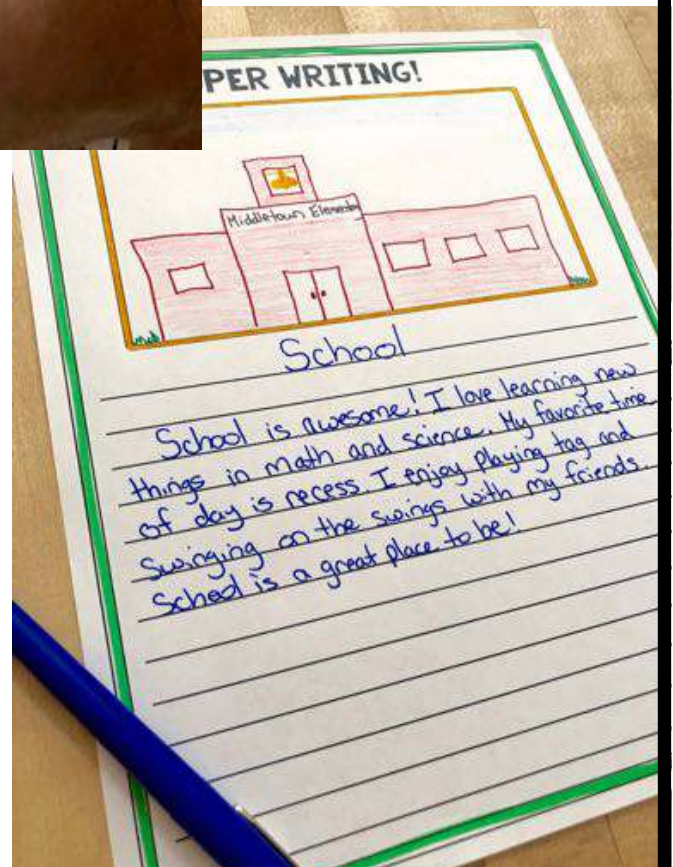 PER WRITING!
Middletown Element
School
School is awesome! I love learning new
things in math and science. My favorite time
of day is recess. I enjoy playing tag and
swinging on the swings with my friends.
School is a great place to be!